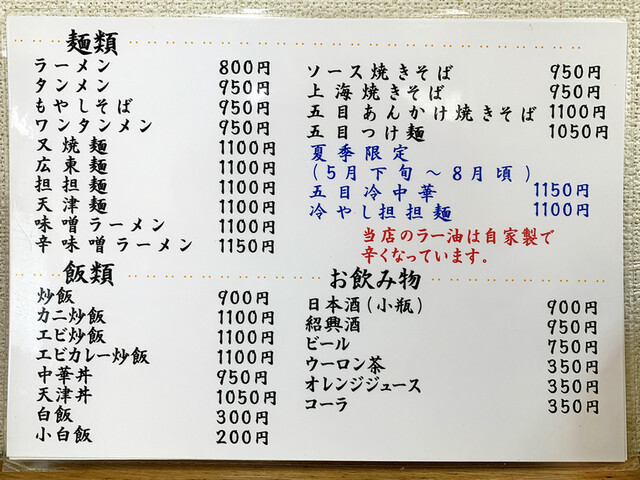 麺類
ラーメン 800円
タンメン 950円
もやしそば 950円
ワンタンメン 950円
叉焼麺 1100円
広東麺 1100円
担担麺 1100円
天津麺 1100円
味噌ラーメン 1100円
辛味噌ラーメン 1150円
ソース焼きそば 950円
上海焼きそば 950円
五目あんかけ焼きそば 1100円
五目つけ麺 1050円
夏季限定
(5月下旬～8月頃)
五目冷中華 1150円
冷やし担担麺 1100円
当店のラー油は自家製で
辛くなっています。
飯類
炒飯 900円
カニ炒飯 1100円
エビ炒飯 1100円
エビカレー炒飯 1100円
中華丼 950円
天津丼 1050円
白飯 300円
小白飯 200円
お飲み物
日本酒(小瓶) 900円
紹興酒 950円
ビール 750円
ウーロン茶 350円
オレンジジュース 350円
コーラ 350円